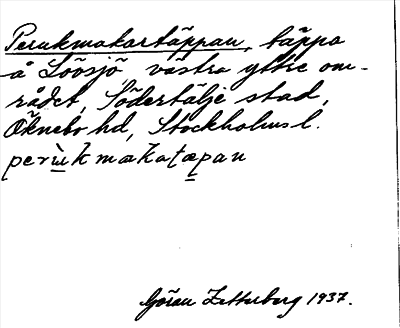 Perukmakartäppan, täppa
å Löösjö västra yttre om-
rådet, Södertälje stad,
Öknebo hd, Stockholms l.
perùkmakatæpan
Göran Zetterberg 1937.